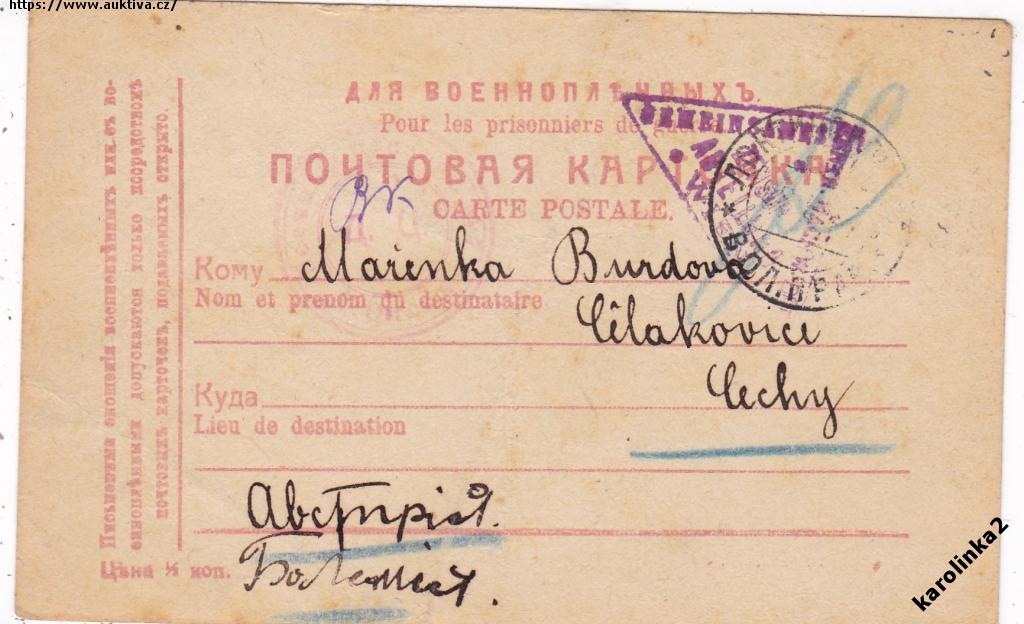 https://www.auktiva.cz/
ДЛЯ ВОЕННОПЛѢННЫХЪ.
Pour les prisonniers de
ПОЧТОВАЯ КАРТОЧКА
CARTE POSTALE.
Кому Marenka Burdova
Nom et prenom du destinataire
Cêlakovice
Куда Cechy
Lieu de destination
Австрія.
Богемія.
Цѣна ½ коп.
Письменныя сношенія военноплѣнныхъ или съ во-
енноплѣнными допускаются только посредствомъ
почтовыхъ карточекъ, подаваемыхъ открыто.
karolinka2